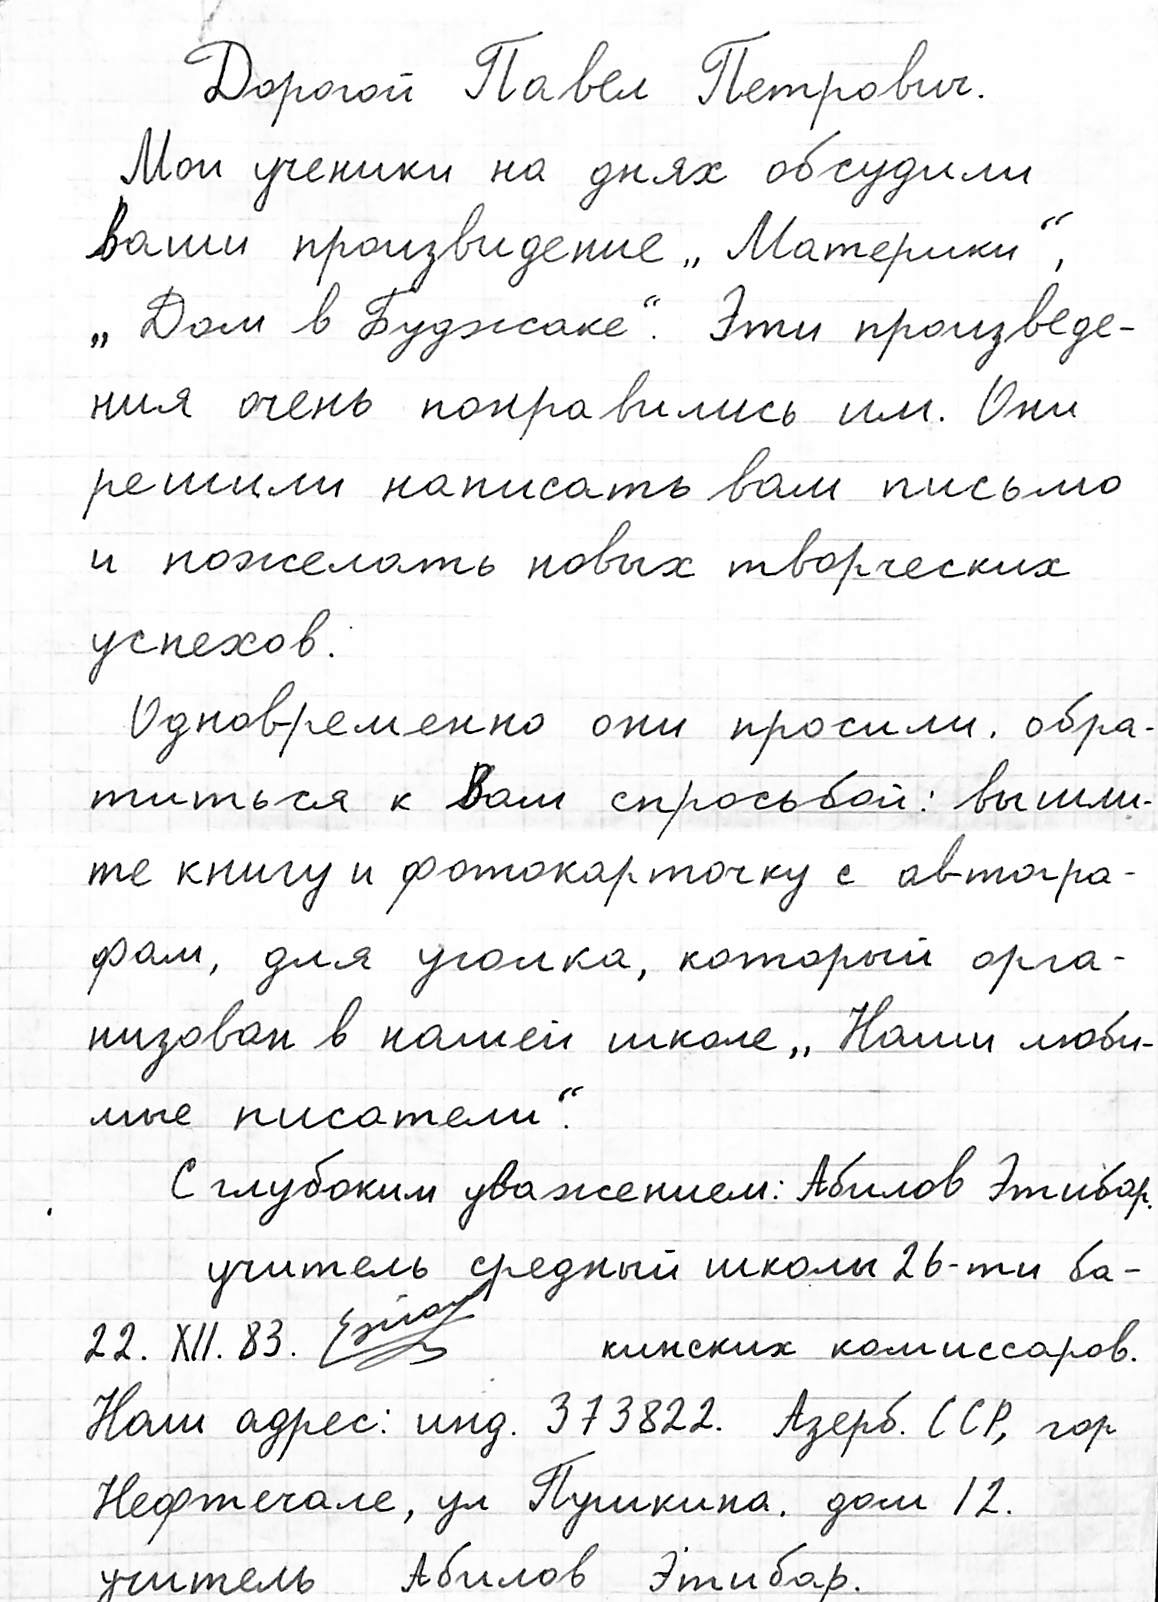 Дорогой Павел Петрович.
Мои ученики на днях обсудили
ваши произвидение „Материки“,
„Дом в Буджаке“. Эти произведе-
ния очень понравились им. Они
решили написать вам письмо
и пожелать новых творческих
успехов.
Одновременно они просили, обра-
титься к Вам спросьбой: вышли-
те книгу и фотокарточку с автогра-
фам, для уголка, который орга-
низован в нашей школе „Наши люби-
мые писатели“.
С глубоким уважением: Абилов Этибар.
учитель средный школы 26-ти ба-
22. XII. 83. кинских комиссаров.
Наш адрес: инд. 373822. Азерб. ССР, гор
Нефтечале, ул Пушкина. дом 12.
учитель Абилов Этибар.